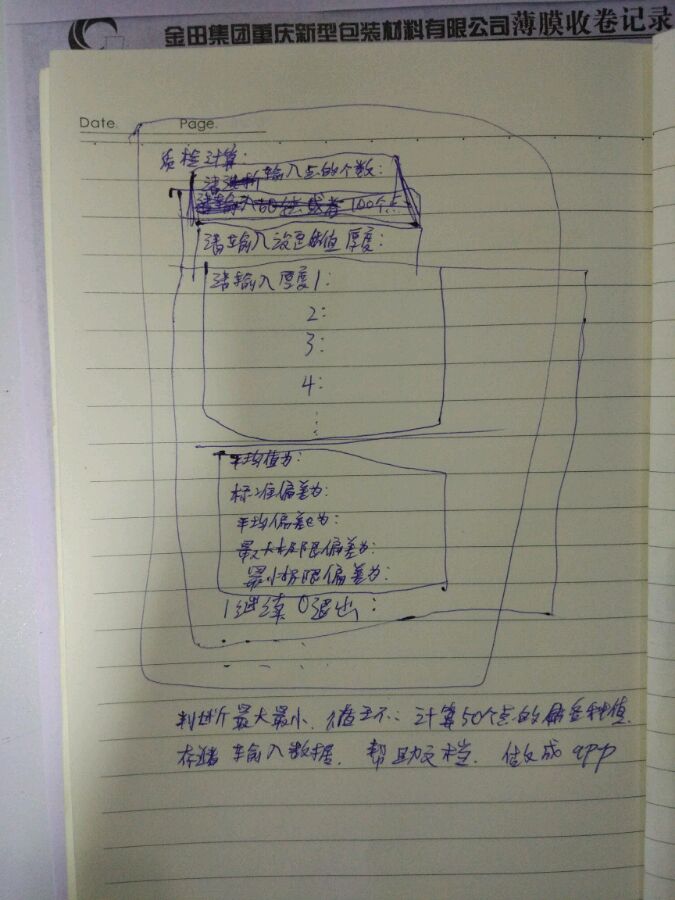 金田集团重庆新型包装材料有限公司薄膜收卷记录
Date.
Page.
质检计算:
请输入点的个数:
100个点
请输入设定值厚度:
请输入厚度1:
2:
3:
4:
平均值为:
标准偏差为:
平均偏差为:
最大极限偏差为:
最小极限偏差为:
1继续 0退出:
判断最大最小, 计算50个点的偏差值
存储输入数据. 帮助文档. 做成app